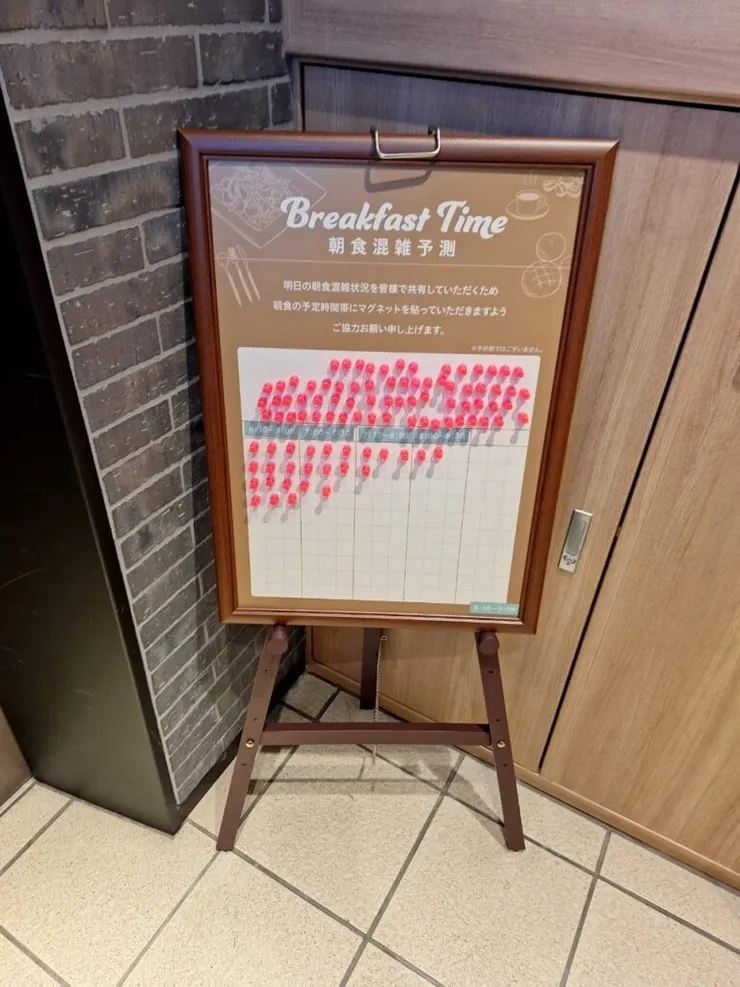 Breakfast Time
朝食混雑予測
明日の朝食混雑状況を皆様で共有していただくため
朝食の予定時間帯にマグネットを貼っていただきますよう
ご協力お願い申し上げます。
※予約制ではございません。
6:30〜7:00 7:00〜7:30 7:30〜8:00 8:00〜8:30
8:30〜9:00